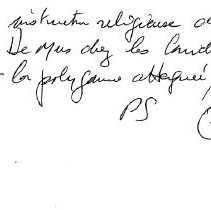 instruction religieuse
De Mus chez les
la polygamie attaquée
PS